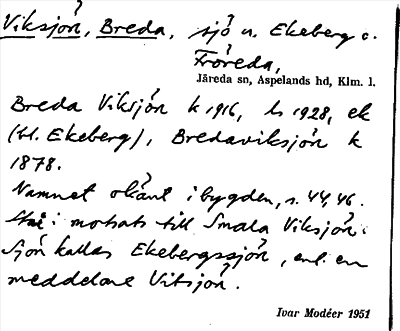 Viksjön, Breda, sjö n. Ekeberg o.
Fröreda,
Järeda sn, Aspelands hd, Klm. l.
Breda Viksjön k 1916, ls 1928, ek
(bl. Ekeberg), Bredaviksjön k
1878.
Namnet okänt i bygden, s. 44, 46.
i motsats till Smala Viksjön.
Sjön kallas Ekebergssjön, enl. en
meddelare Vitsjön.
Ivar Modéer 1951